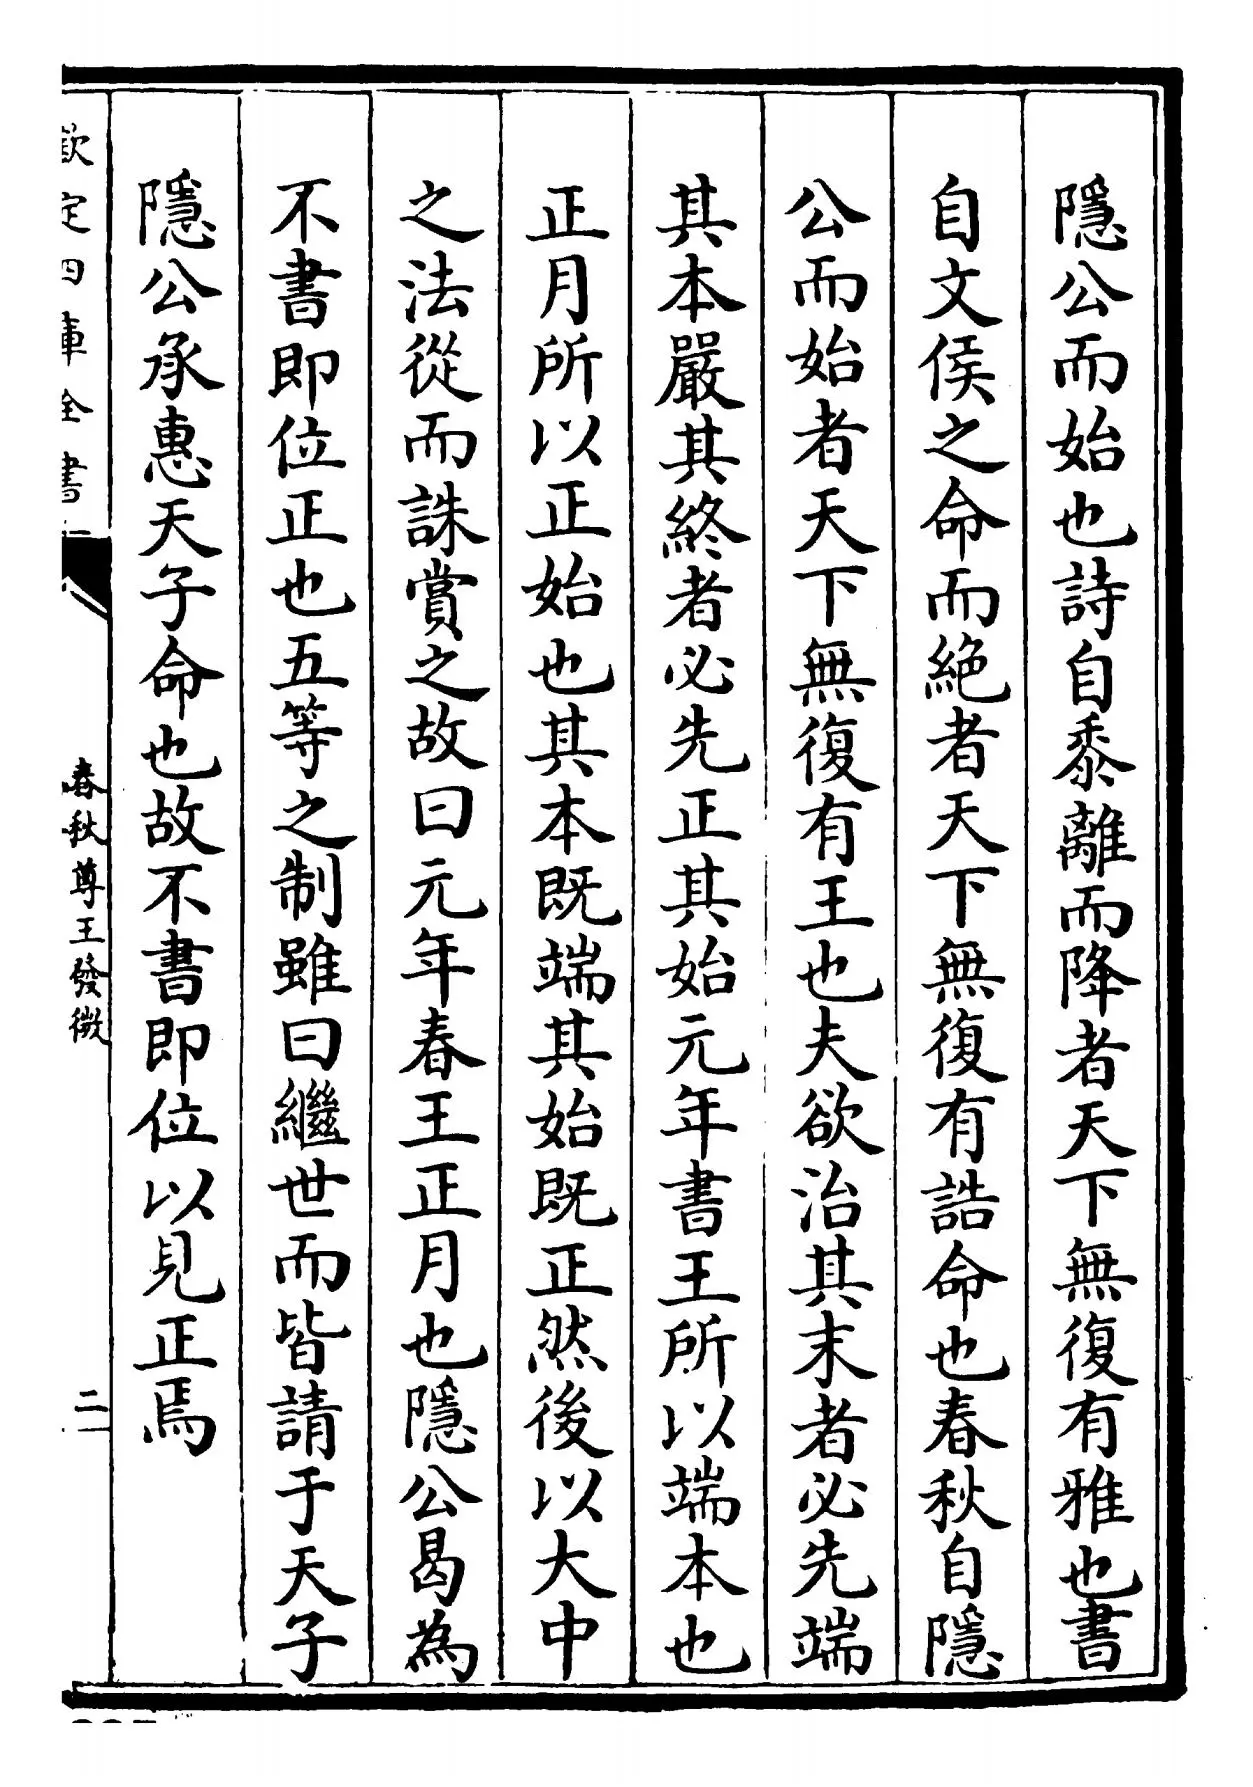 隱公而始也詩自黍離而降者天下無復有雅也書
自文侯之命而絶者天下無復有誥命也春秋自隱
公而始者天下無復有王也夫欲治其末者必先端
其本嚴其終者必先正其始元年書王所以端本也
正月所以正始也其本既端其始既正然後以大中
之法從而誅賞之故曰元年春王正月也隱公曷為
不書即位正也五等之制雖曰繼世而皆請于天子
隱公承惠天子命也故不書即位以見正焉
欽定四庫全書
春秋尊王發微
二